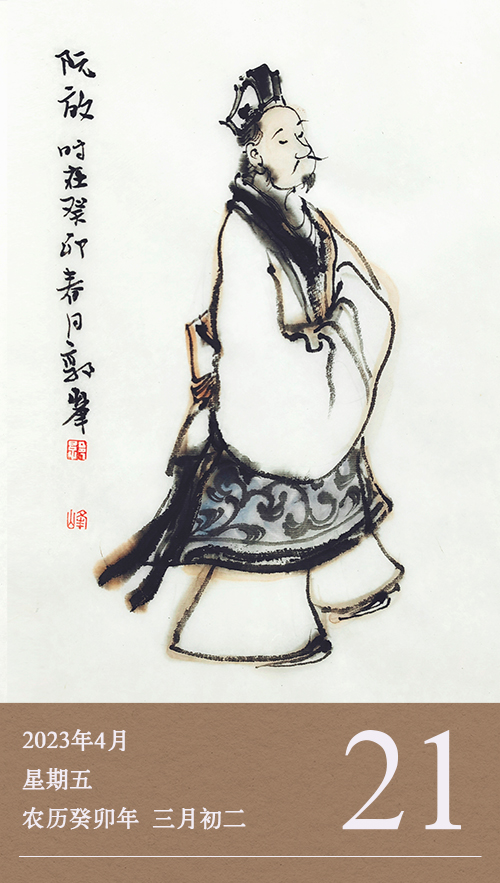 阮放 时在癸卯春月郭峯
峰
2023年4月
星期五
农历癸卯年 三月初二
21